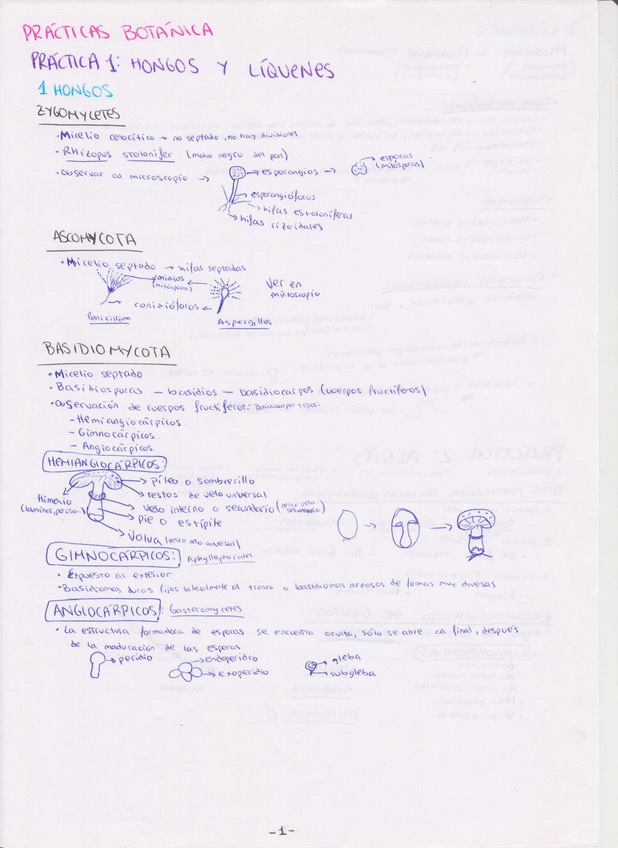 PRÁCTICAS BOTÁNICA
PRÁCTICA 1: HONGOS Y LÍQUENES
1 HONGOS
ZYGOMYCETES
· Micelio cenocítico → no septado, no hay divisiones
· Rhizopus stolonifer (moho negro del pan)
· Observar al microscopio →
→ esporangios →
esporas
(mitósporas)
→ esporangióforos
→ hifas estoloníferas
→ hifas rizoidales
ASCOMYCOTA
· Micelio septado → hifas septadas
conidios
(mitósporas)
conidióforos
Ver en
microscopio
Penicillium
Aspergillus
BASIDIOMYCOTA
· Micelio septado
· Basidiosporas – basidios – basidiocarpos (cuerpos fructíferos)
· Observación de cuerpos fructíferos: Basidiocarpos tipos:
– Hemiangiocárpicos
– Gimnocárpicos
– Angiocárpicos
HEMIANGIOCÁRPICOS:
píleo o sombrerillo
restos de velo universal
velo interno o secundario (resto velo secundario)
pie o estípite
Volva (resto velo universal)
Himenio
(laminar, poroso...)
GIMNOCÁRPICOS: Aphyllophorales
· Expuesto al exterior
· Basidiomas duros fijos lateralmente al tronco o basidiomas carnosos de formas muy diversas
ANGIOCÁRPICOS: Gasteromycetes
· La estructura formadora de esporas se encuentra oculta, sólo se abre al final, después
de la maduración de las esporas
→ peridio
→ endoperidio
→ exoperidio
→ gleba
→ subgleba
-1-